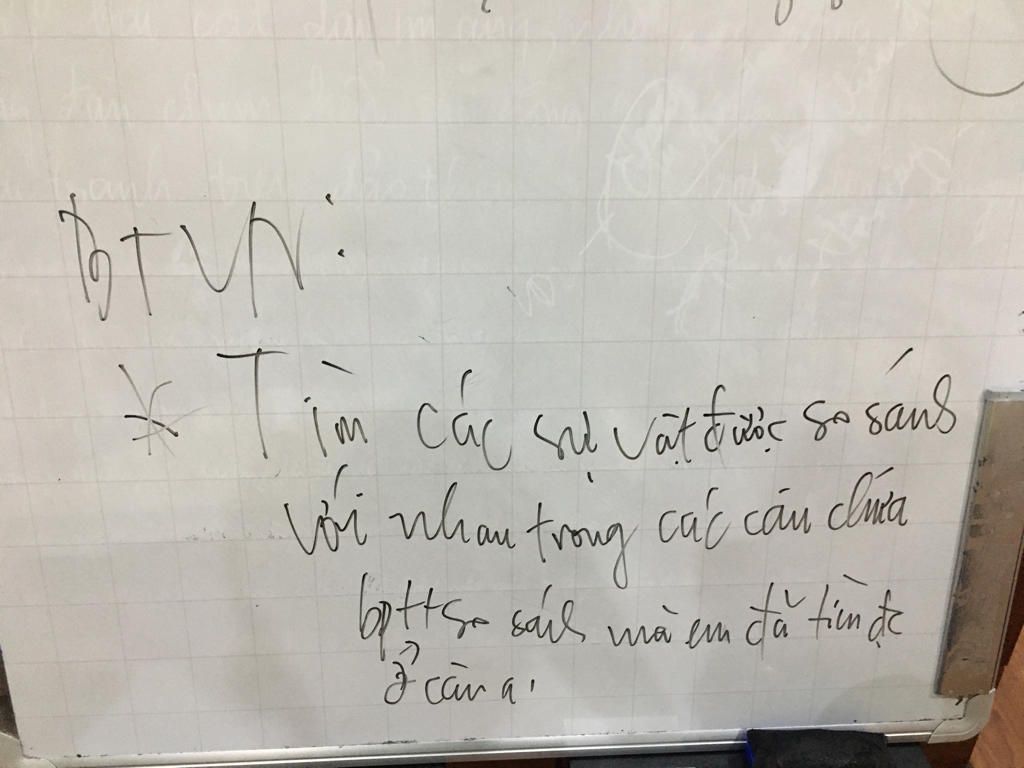 BTVN:
* Tìm các sự vật được so sánh
với nhau trong các câu chứa
bptt so sánh mà em đã tìm đc
ở câu a.